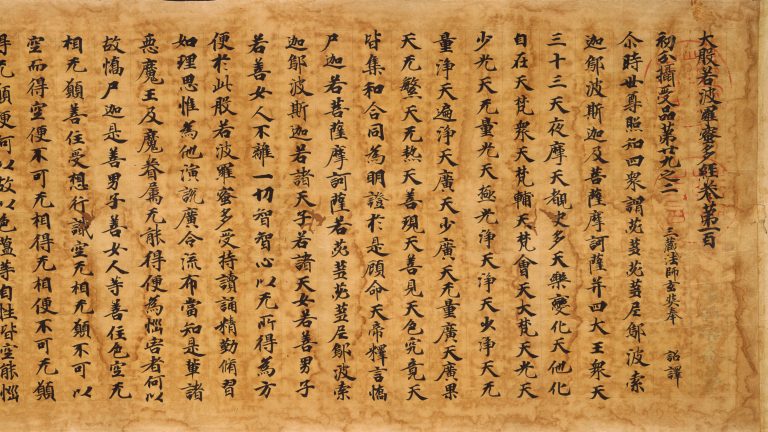 大般若波羅蜜多經卷第一百
初分攝受品第廿九之二 三藏法師玄奘奉 詔譯
尒時世尊照知四衆謂苾芻苾芻尼鄔波索
迦鄔波斯迦及菩薩摩訶薩并四大王衆天
三十三天夜摩天覩史多天樂變化天他化
自在天梵衆天梵輔天梵會天大梵天光天
少光天无量光天極光淨天淨天少淨天无
量淨天遍淨天廣天少廣天无量廣天廣果
天无繁天无熱天善現天善見天色究竟天
皆集和合同為明證於是顧命天帝釋言憍
尸迦若菩薩摩訶薩若苾芻苾芻尼鄔波索
迦鄔波斯迦若諸天子若諸天女若善男子
若善女人不離一切智智心以无所得為方
便於此般若波羅蜜多受持讀誦精勤脩習
如理思惟為他演說廣令流布當知是輩諸
惡魔王及魔眷屬无能得便為惱害者何以
故憍尸迦是善男子善女人等善住色空无
相无願善住受想行識空无相无願不可以
空而得空便不可无相得无相便不可无願
得无願便何以故以色蘊等自性皆空能惱